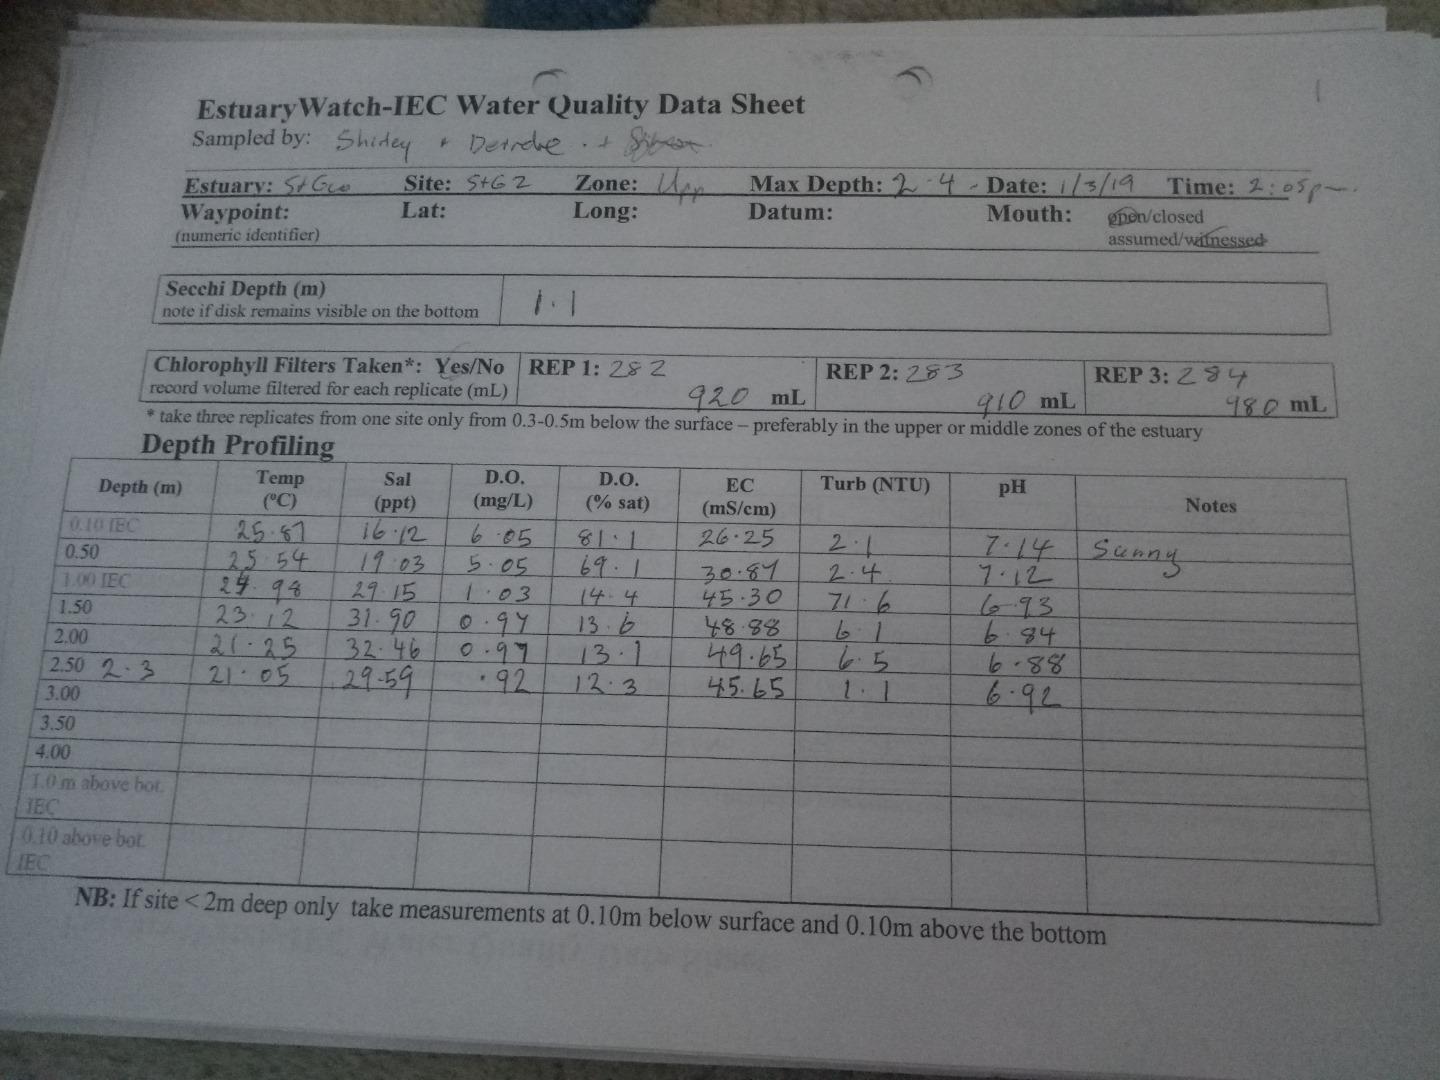 1
EstuaryWatch-IEC Water Quality Data Sheet
Sampled by: Shirley + Deirdre . +
Estuary: StGeo Site: StG2 Zone: Upp Max Depth: 2.4 Date: 1/3/19 Time: 2:05pm
Waypoint: Lat: Long: Datum: Mouth: open/closed
(numeric identifier) assumed/witnessed
Secchi Depth (m) 1.1
note if disk remains visible on the bottom
Chlorophyll Filters Taken*: Yes/No REP 1: 282 REP 2: 283 REP 3: 284
record volume filtered for each replicate (mL) 920 mL 910 mL 980 mL
* take three replicates from one site only from 0.3-0.5m below the surface – preferably in the upper or middle zones of the estuary
Depth Profiling
Depth (m) Temp (ºC) Sal (ppt) D.O. (mg/L) D.O. (% sat) EC (mS/cm) Turb (NTU) pH Notes
0.10 IEC 25.87 16.12 6.05 81.1 26.25 2.1 7.14 Sunny
0.50 25.54 19.03 5.05 69.1 30.87 2.4 7.12
1.00 IEC 24.98 29.15 1.03 14.4 45.30 71.6 6.93
1.50 23.12 31.90 0.97 13.6 48.88 6.1 6.84
2.00 21.25 32.46 0.97 13.1 49.65 6.5 6.88
2.50 2.3 21.05 29.59 .92 12.3 45.65 1.1 6.92
3.00
3.50
4.00
1.0 m above bot.
IEC
0.10 above bot.
IEC
NB: If site < 2m deep only take measurements at 0.10m below surface and 0.10m above the bottom